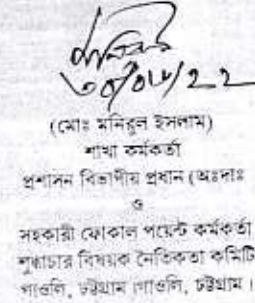 ৩০/০৮/২২
(মোঃ মনিরুল ইসলাম)
শাখা কর্মকর্তা
প্রশাসন বিভাগীয় প্রধান (অঃদাঃ
ও
সহকারী ফোকাল পয়েন্ট কর্মকর্তা
শুদ্ধাচার বিষয়ক নৈতিকতা কমিটি
পাওলি, চট্টগ্রাম।পাওলি, চট্টগ্রাম।